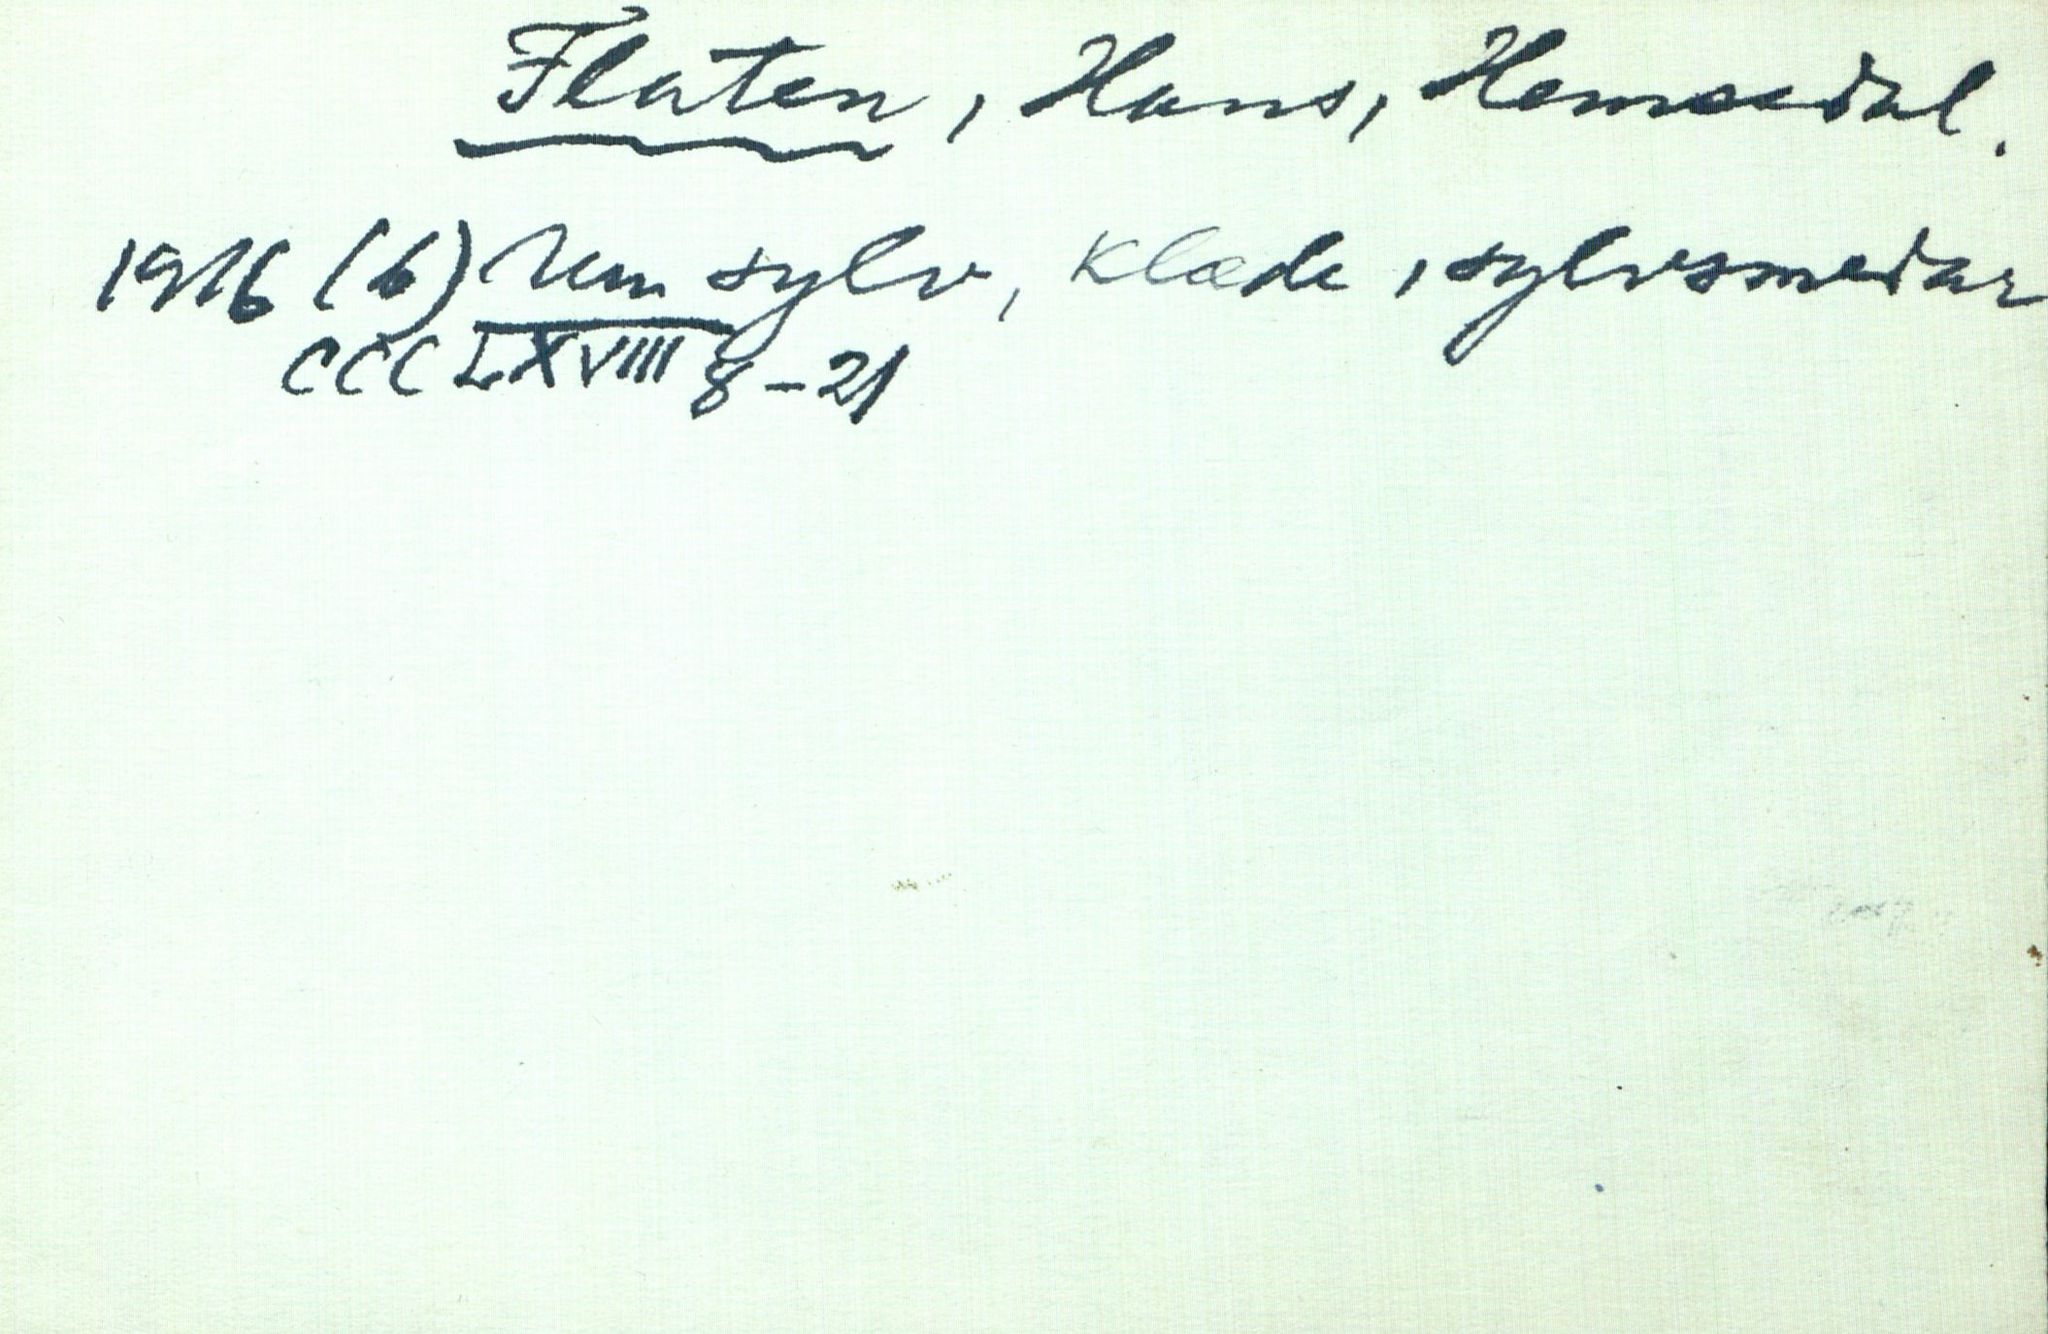 Flaten, Hans, Hemsedal.
1916 (6) Um sylv, klæde, sylvsmedar
CCCLXVIII 8-21